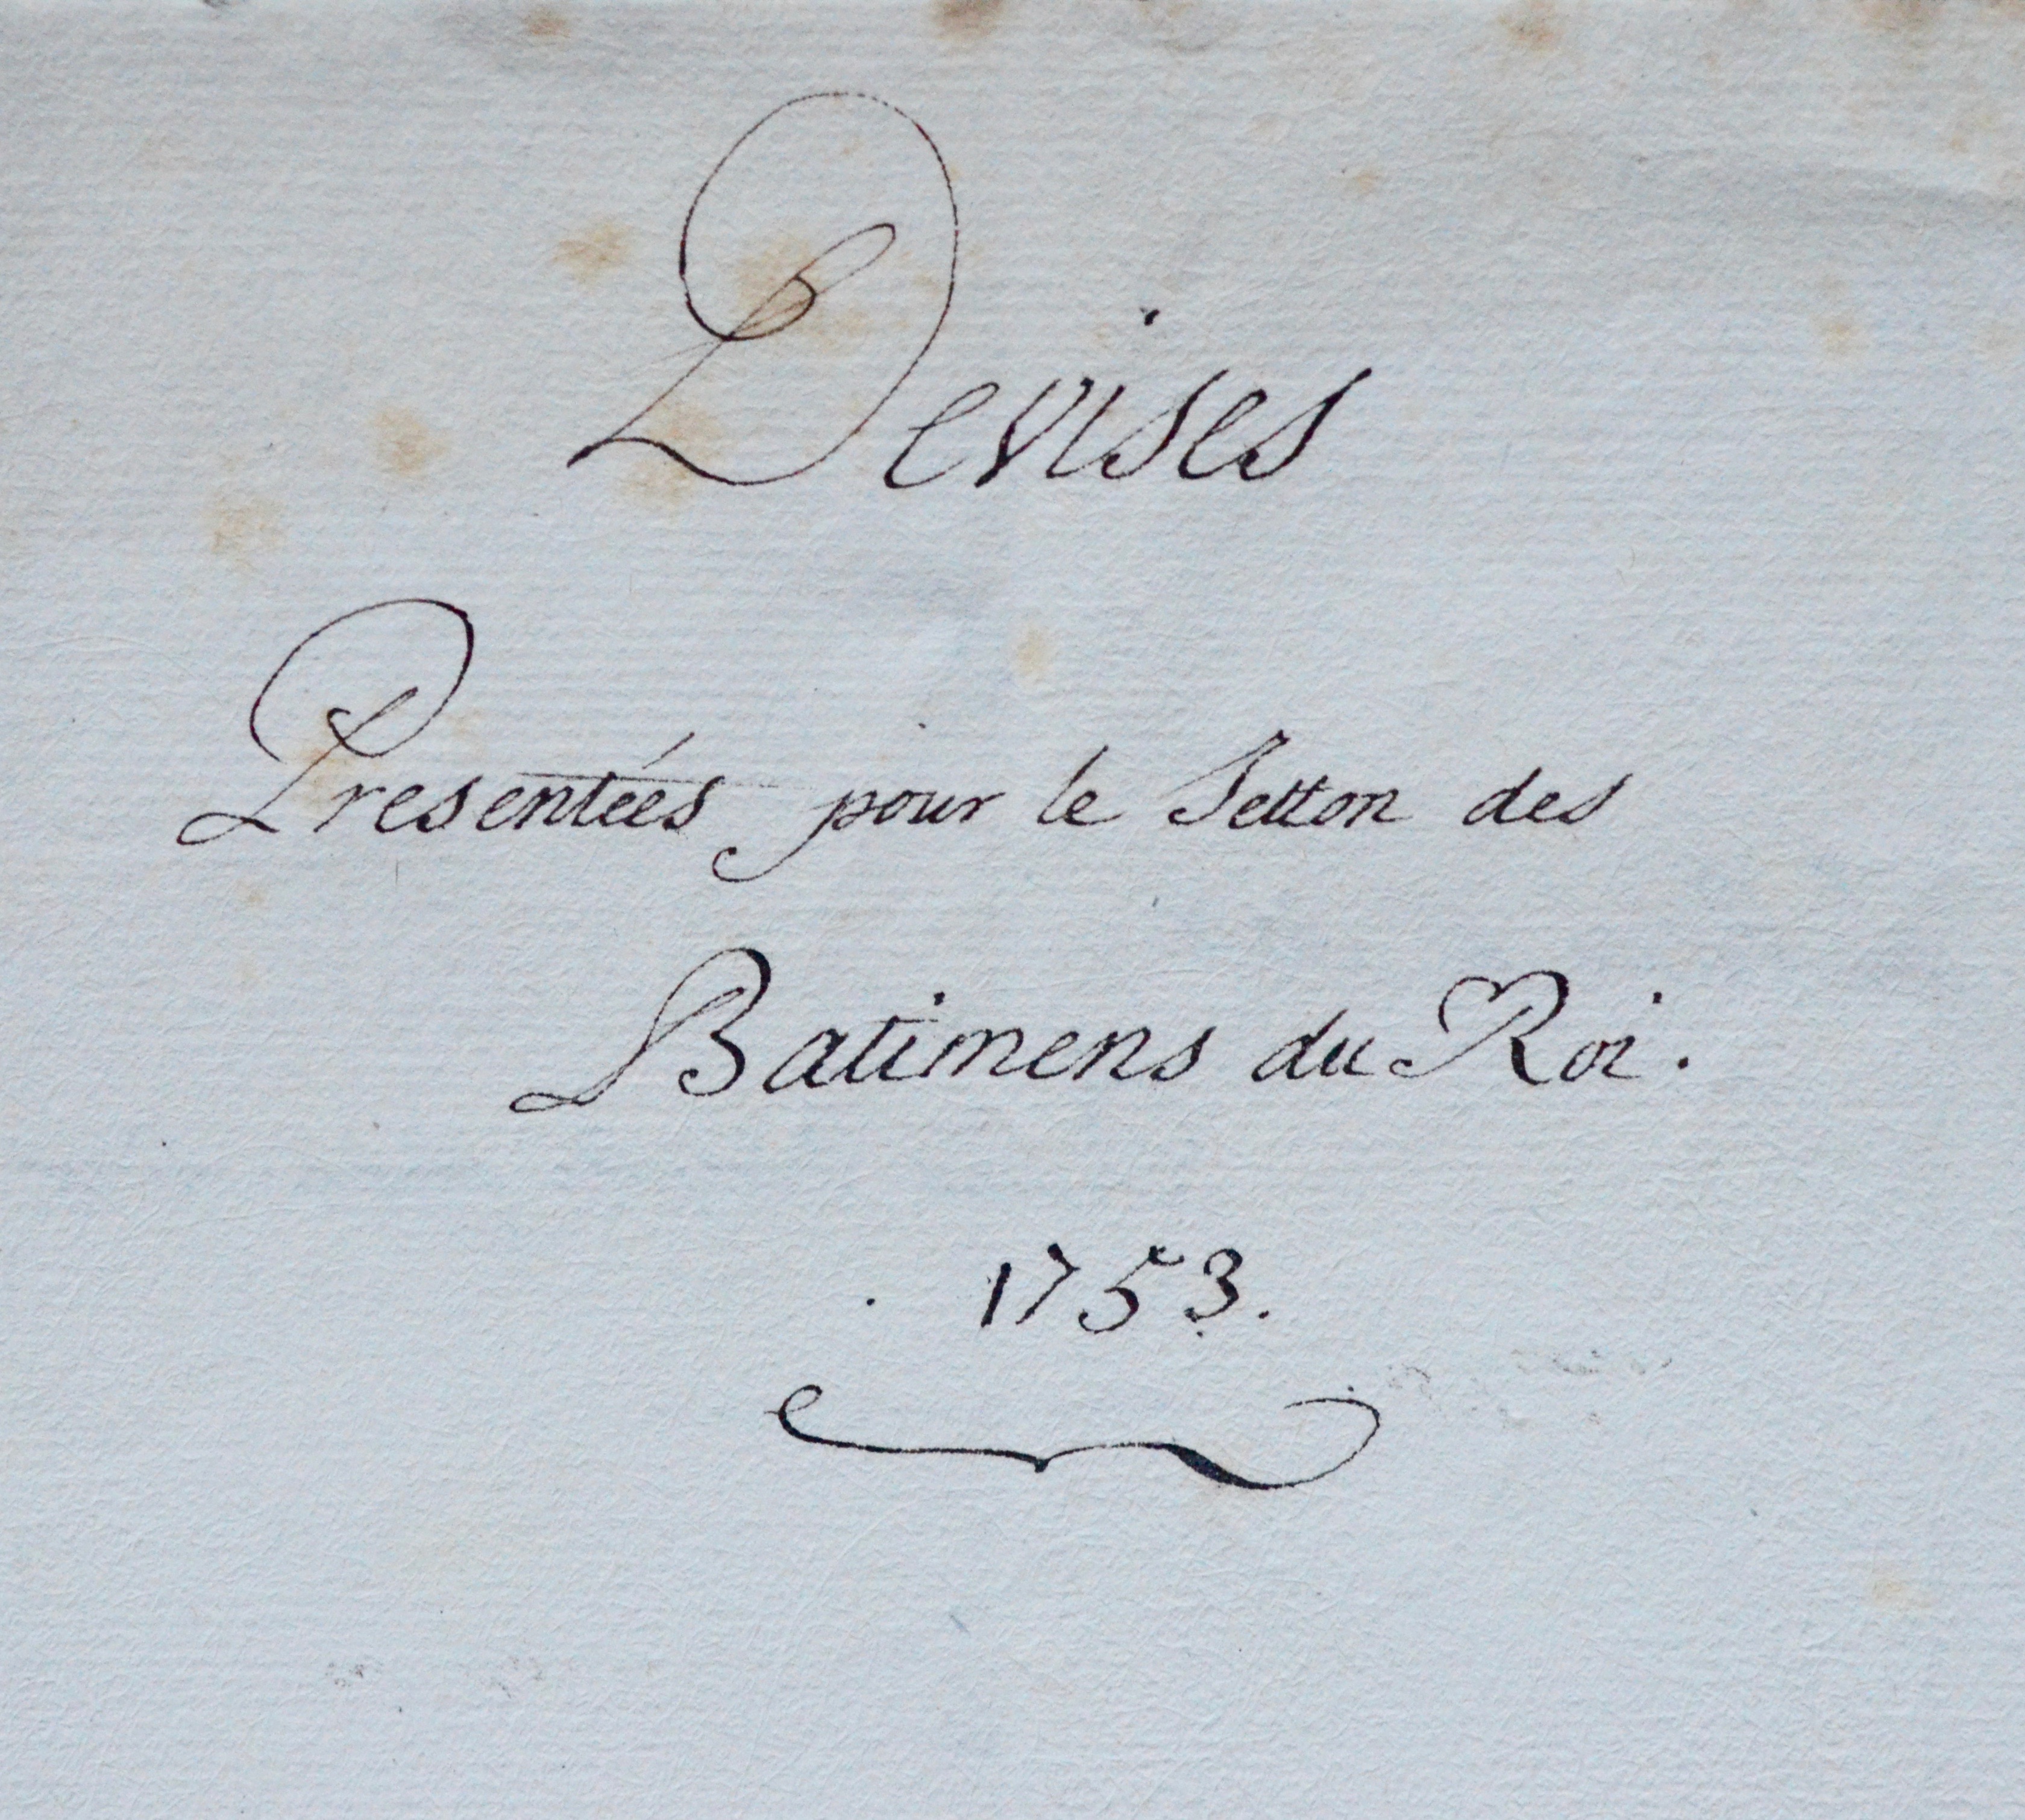 Devises
Presentées pour le Jetton des
Batimens du Roi.
1753.